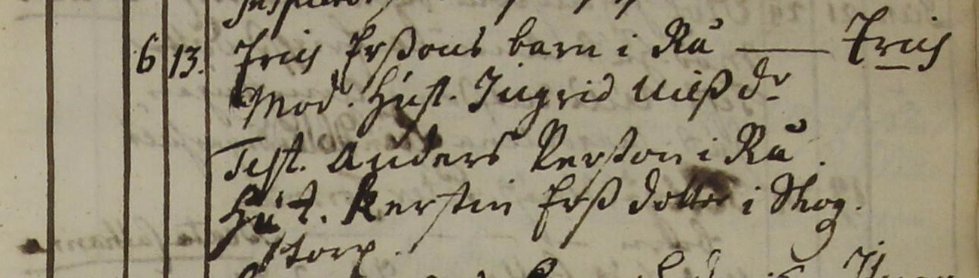 6 13. Erich Erßons barn i Rå — Erich
Mod. Hust. Ingrid Nilß dr
Test. Anders Perßon i Rå.
Hust. Kerstin Erß dotter i Skog
storp.